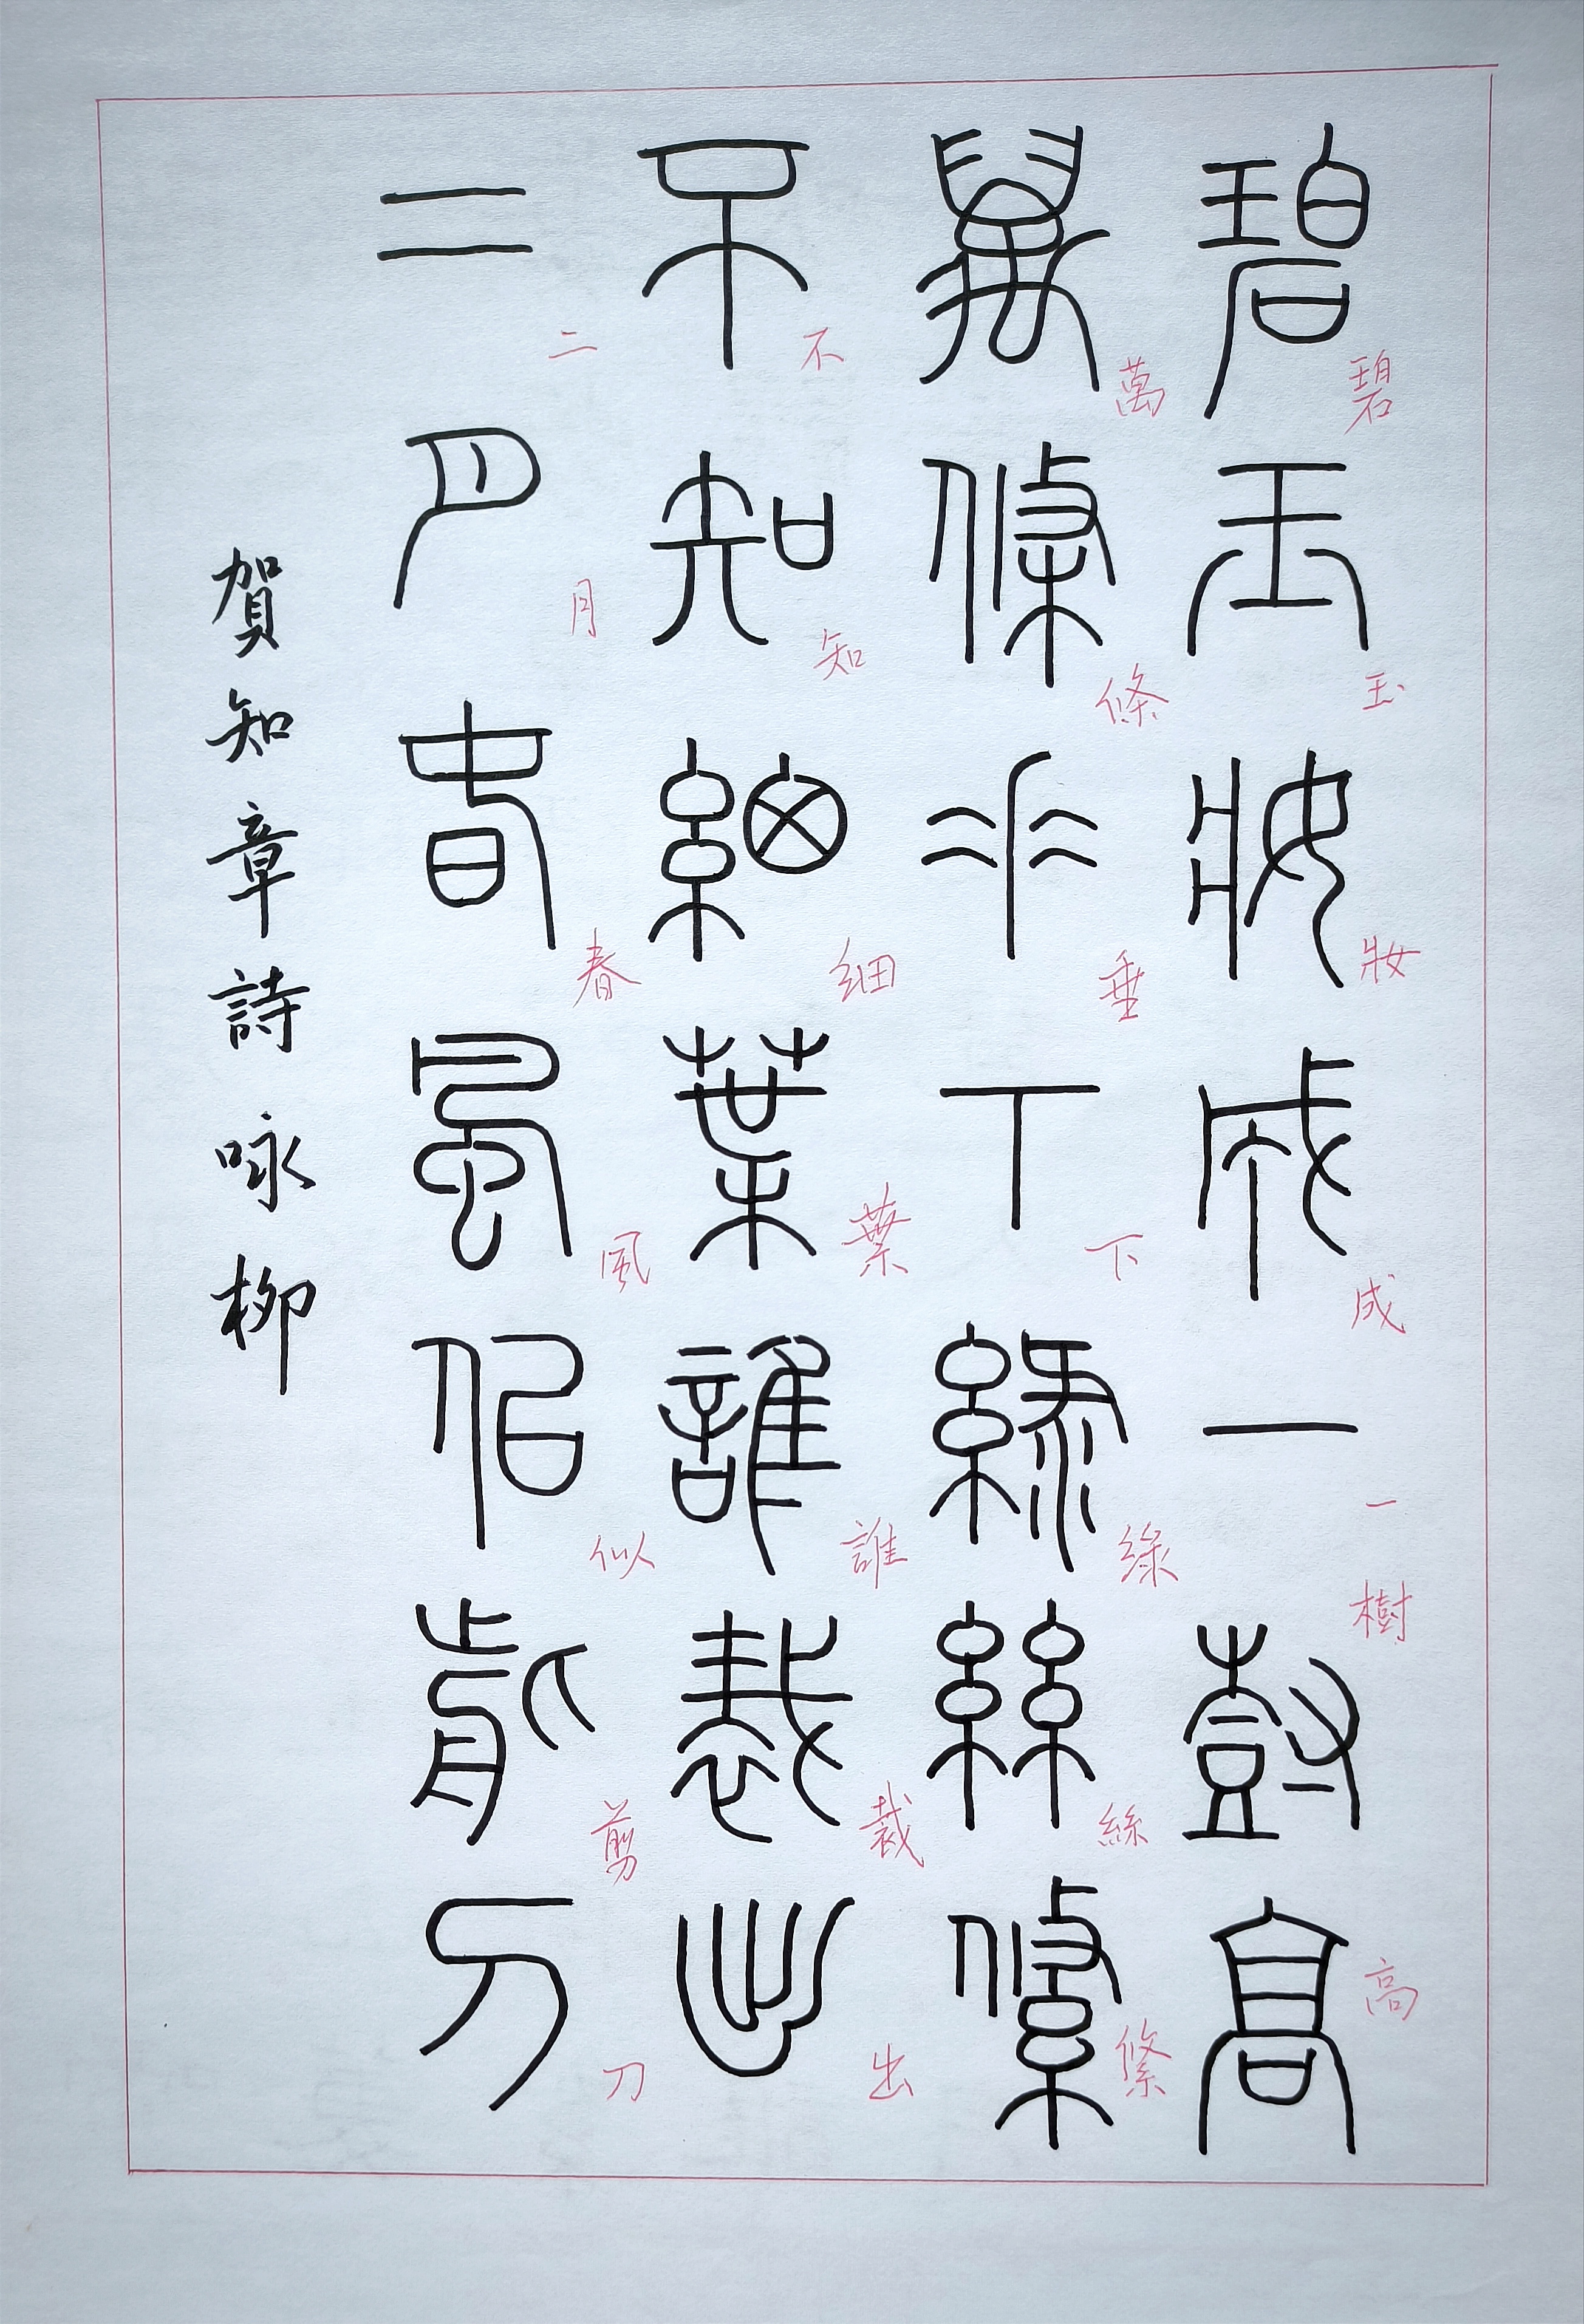 碧玉妝成一樹高
萬條垂下綠絲絛
不知細葉誰裁出
二月春風似剪刀
賀知章詩咏柳
碧玉妝成一樹高
萬條垂下綠絲絛
不知细葉誰裁出
二月春風似剪刀